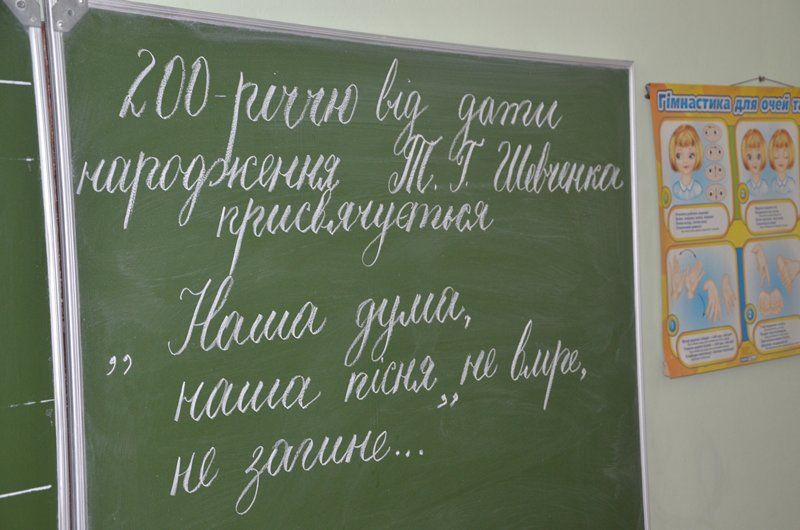 200-річчю від дати
народження Т. Г. Шевченка
присвячується
„Наша дума,
наша пісня„ не вмре,
не загине...
Гімнастика для очей та